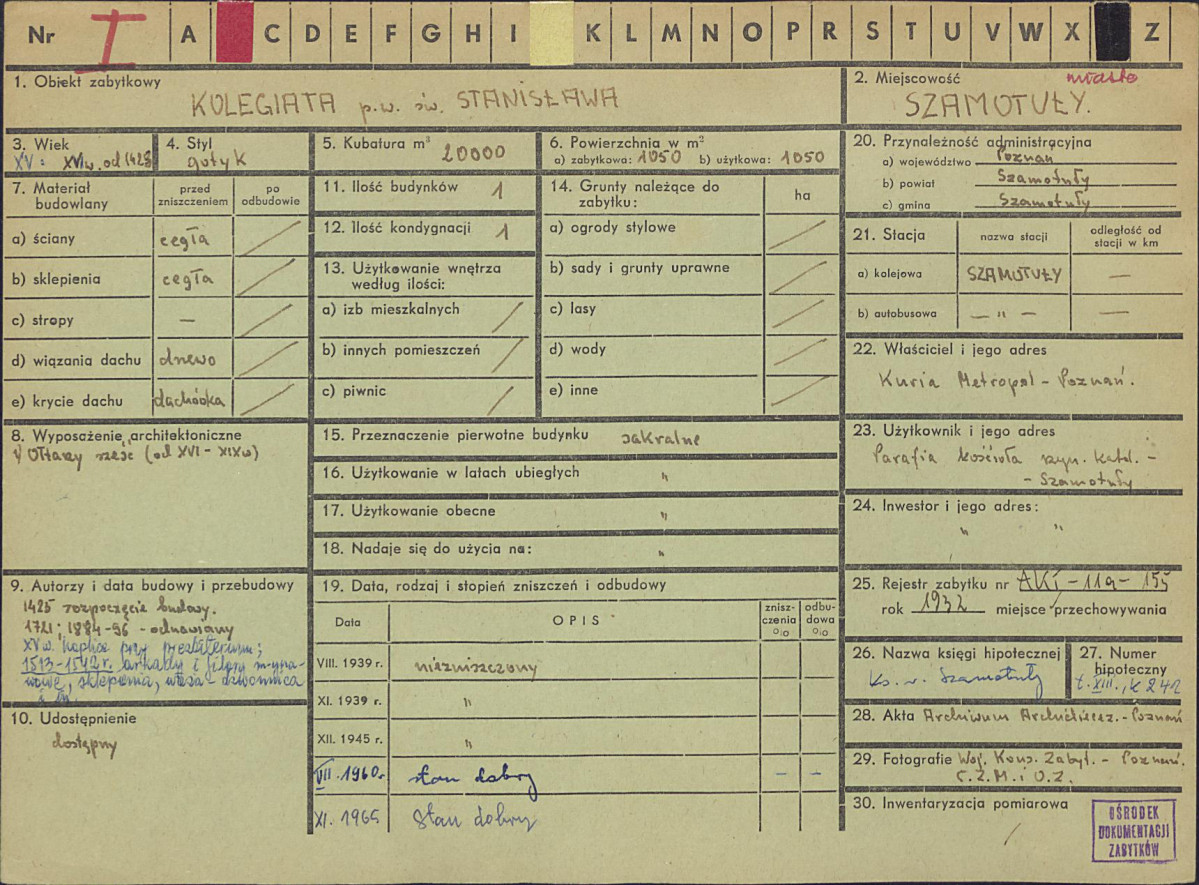 Nr I A C D E F G H I K L M N O P R S T U V W X Z
1. Obiekt zabytkowy
KOLEGIATA p.w. św. STANISŁAWA
2. Miejscowość miasto
SZAMOTUŁY.
3. Wiek
XV: XVIw. od 1423
4. Styl
gotyk
5. Kubatura m³ 20000
6. Powierzchnia w m²
a) zabytkowa: 1050 b) użytkowa: 1050
7. Materiał budowlany
przed zniszczeniem
po odbudowie
a) ściany cegła
b) sklepienia cegła
c) stropy —
d) wiązania dachu drzewo
e) krycie dachu dachówka
8. Wyposażenie architektoniczne
Ołtarzy sześć (od XVI - XIXw)
9. Autorzy i data budowy i przebudowy
1425 rozpoczęcie budowy.
1721; 1884-96 - odnawiany
XVw. kaplica przy prezbiterium;
1513-1542r. arkady i filary m-ynа-
wowe, sklepienia, wieża-dzwonnica
i in.
10. Udostępnienie
dostępny
11. Ilość budynków 1
12. Ilość kondygnacji 1
13. Użytkowanie wnętrza
według ilości:
a) izb mieszkalnych
b) innych pomieszczeń
c) piwnic
14. Grunty należące do
zabytku: ha
a) ogrody stylowe
b) sady i grunty uprawne
c) lasy
d) wody
e) inne
15. Przeznaczenie pierwotne budynku sakralne
16. Użytkowanie w latach ubiegłych "
17. Użytkowanie obecne "
18. Nadaje się do użycia na: "
19. Data, rodzaj i stopień zniszczeń i odbudowy
Data OPIS znisz-czenia % odbu-dowa %
VIII. 1939 r. niezniszczony
XI. 1939 r. "
XII. 1945 r. "
VII. 1960r. stan dobry — —
XI. 1965 Stan dobry
20. Przynależność administracyjna
a) województwo Poznań
b) powiat Szamotuły
c) gmina Szamotuły
21. Stacja nazwa stacji odległość od stacji w km
a) kolejowa SZAMOTUŁY —
b) autobusowa — " — —
22. Właściciel i jego adres
Kuria Metropol - Poznań.
23. Użytkownik i jego adres
Parafia kościoła rzym. katol. -
- Szamotuły
24. Inwestor i jego adres:
" "
25. Rejestr zabytku nr AKI-11a-155
rok 1932 miejsce przechowywania
26. Nazwa księgi hipotecznej
Ks. w. Szamotuły
27. Numer hipoteczny
t. XIII., k 242
28. Akta Archiwum Archidiecez.-Poznań
29. Fotografie Woj. Kons. Zabyt. - Poznań.
C.Z.M. i O.Z.
30. Inwentaryzacja pomiarowa
OŚRODEK
DOKUMENTACJI
ZABYTKÓW